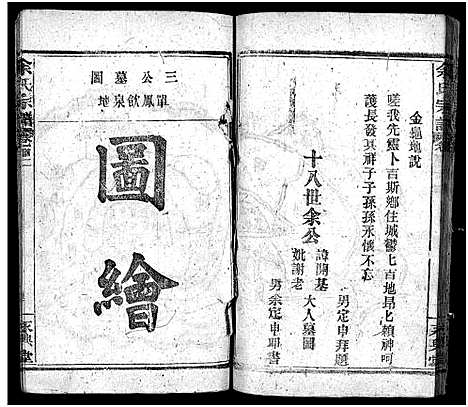 余氏宗譜
金龜地說
嗟我先靈卜吉斯鄉住城鬱七吉地昂七賴神呵
護長發其祥子子孫孫永懷不忘
男定申拜題
十八世余公
諱開基
妣謝老
大人墓圖
男余定申耶書
永興堂
三公墓圖
單鳳飲泉地
圖繪
余氏宗譜
永興堂